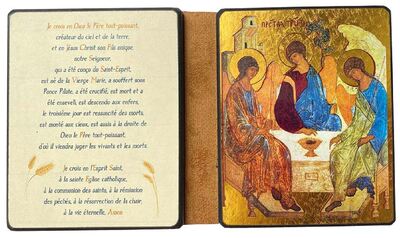 Je crois en Dieu le Père tout-puissant,
créateur du ciel et de la terre,
et en Jésus Christ son Fils unique,
notre Seigneur,
qui a été conçu du Saint-Esprit,
est né de la Vierge Marie, a souffert sous
Ponce Pilate, a été crucifié, est mort et a
été enseveli, est descendu aux enfers,
le troisième jour est ressuscité des morts,
est monté aux cieux, est assis à la droite de
Dieu le Père tout-puissant,
d'où il viendra juger les vivants et les morts.
Je crois en l'Esprit Saint,
à la sainte Eglise catholique,
à la communion des saints, à la rémission
des péchés, à la résurrection de la chair,
à la vie éternelle, Amen